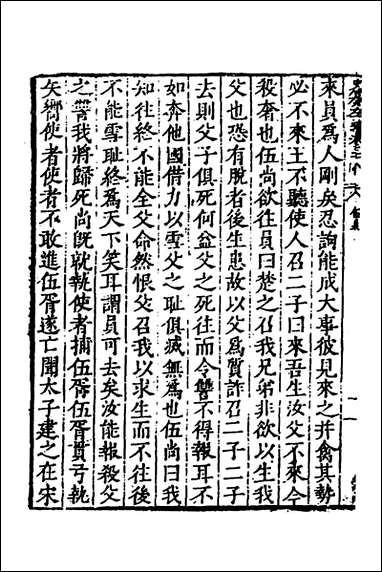 來員爲人剛戾忍訽能成大事彼見來之并禽其勢
必不來王不聽使人召二子曰來吾生汝父不來今
殺奢也伍尚欲往員曰楚之召我兄弟非欲以生我
父也恐有脫者後生患故以父爲質詐召二子二子
去則父子俱死何益父之死往而令讐不得報耳不
如奔他國借力以雪父之耻俱滅無爲也伍尚曰我
知往終不能全父命然恨父召我以求生而不往後
不能雪耻終爲天下笑耳謂員可去矣汝能報殺父
之讐我將歸死尚旣就執使者捕伍胥伍胥貫弓執
矢嚮使者使者不敢進伍胥遂亡聞太子建之在宋